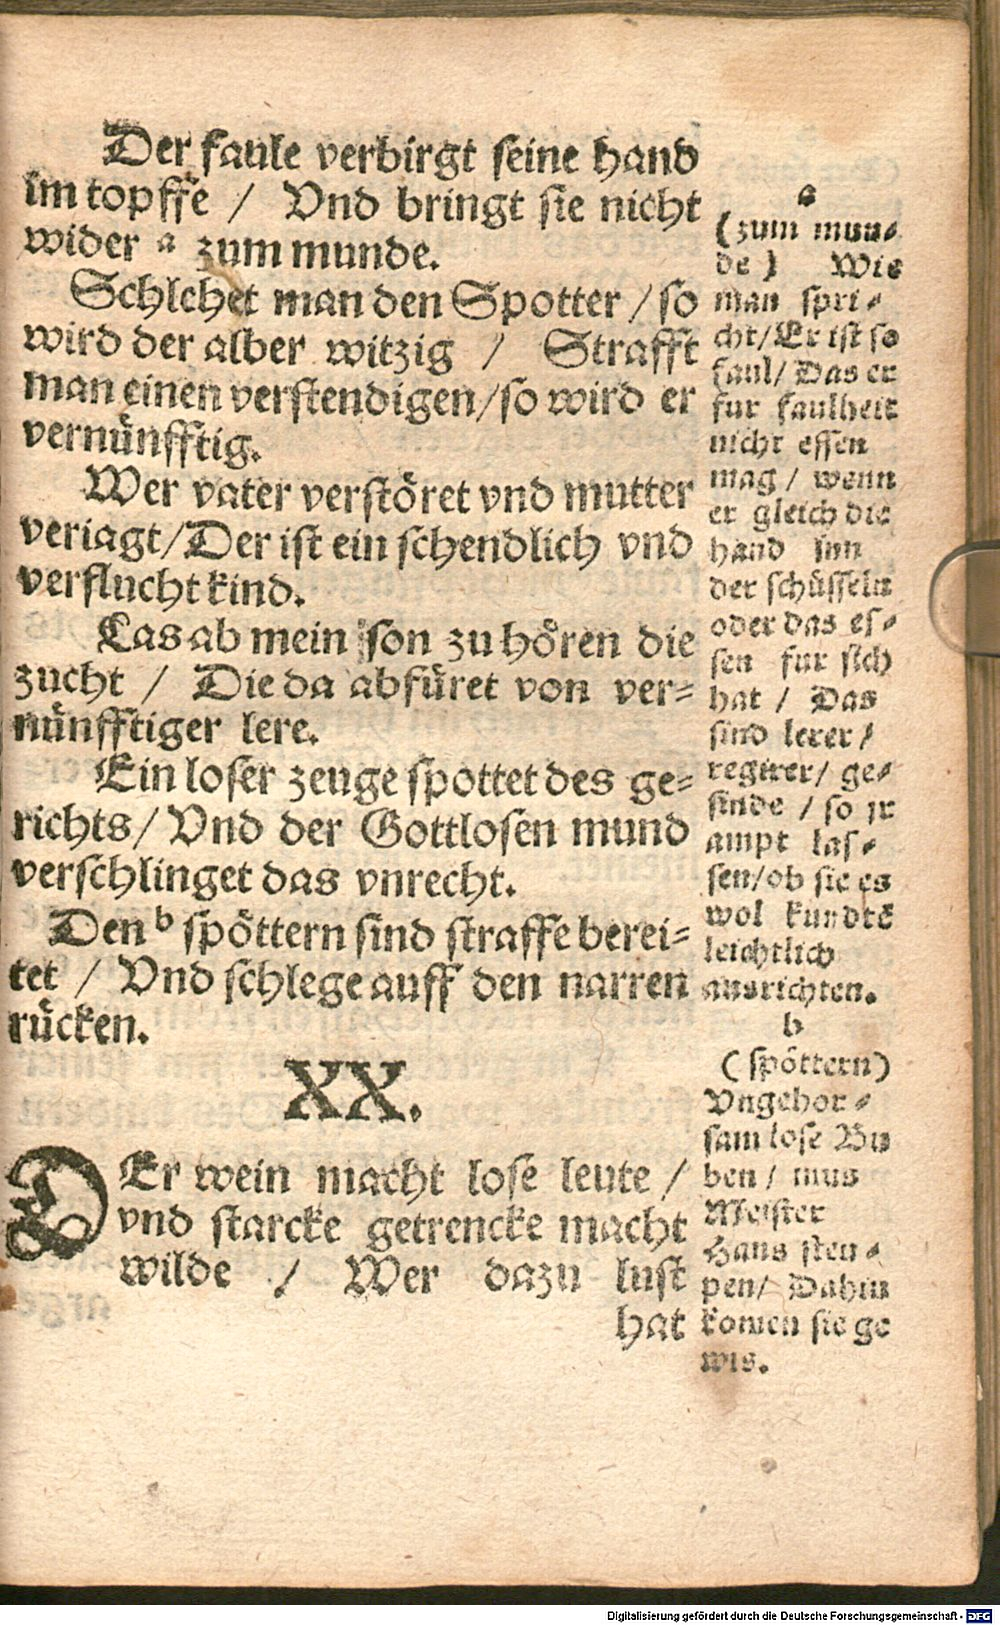 Der faule verbirgt seine hand
im topffe / Vnd bringt sie nicht
wider a zum munde.
Schlehet man den Spotter / so
wird der alber witzig / Strafft
man einen verstendigen / so wird er
vernünfftig.
Wer vater verstöret vnd mutter
veriagt / Der ist ein schendlich vnd
verflucht kind.
Las ab mein son zu hören die
zucht / Die da abfüret von ver=
nünfftiger lere.
Ein loser zeuge spottet des ge=
richts / Vnd der Gottlosen mund
verschlinget das vnrecht.
Den b spöttern sind straffe berei=
tet / Vnd schlege auff den narren
rücken.
XX.
DEr wein macht lose leute /
vnd starcke getrencke macht
wilde / Wer dazu lust
hat
a
(zum mun=
de) Wie
man spri=
cht / Er ist so
faul / Das er
fur faulheit
nicht essen
mag / wenn
er gleich die
hand inn
der schüsseln
oder das es=
sen fur sich
hat / Das
sind lerer /
regirer / ge=
sinde / so jr
ampt las=
sen / ob sie es
wol kundtē
leichtlich
ausrichten.
b
(spöttern)
Vngehor=
sam lose Bu
ben / mus
Meister
Hans steu=
pen / Dahin
komen sie ge
wis.
Digitalisierung gefördert durch die Deutsche Forschungsgemeinschaft - DFG